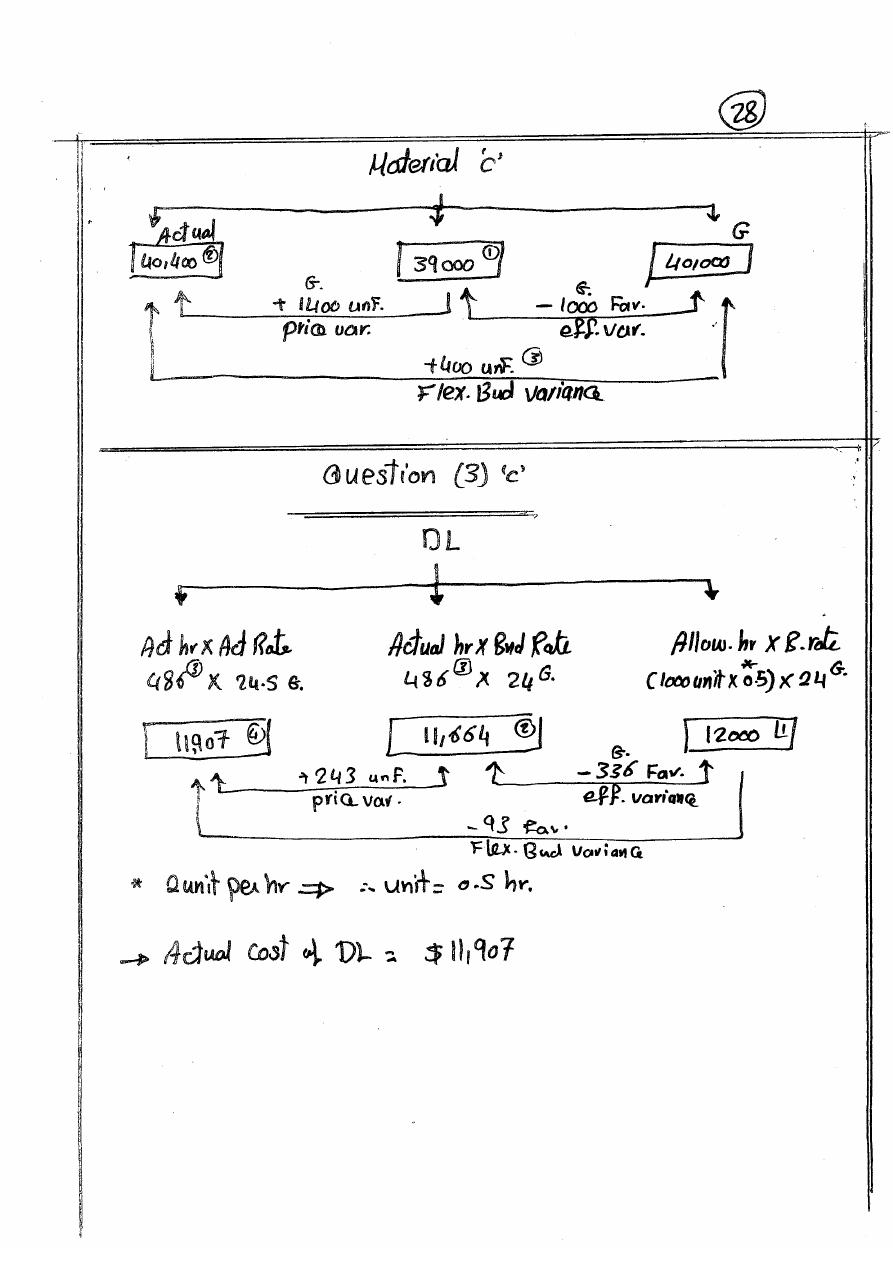 28
Material 'c'
Actual
G
40,400 ②
39000 ①
40,000
G.
+ 1400 unF.
price var.
G.
- 1000 Fav.
eff. var.
+400 unF. ③
Flex. Bud Variance
Question (3) 'c'
DL
Act hr X Act Rate
Actual hr X Bud Rate
Allow. hr X B. rate
486 ③ X 24.5 G.
486 ③ X 24 G.
(1000 unit X 0.5*) X 24 G.
11907 ④
11,664 ②
12000 1
+243 unF.
price var.
G.
- 336 Fav.
eff. variance
- 93 Fav.
Flex. Bud Variance
* 2unit per hr ⇒ ∴ unit = 0.5 hr.
→ Actual Cost of DL = $11,907